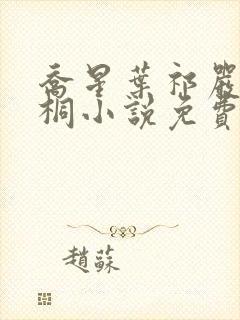 喬星葉祁嚴
桐小說免費
趙蘇